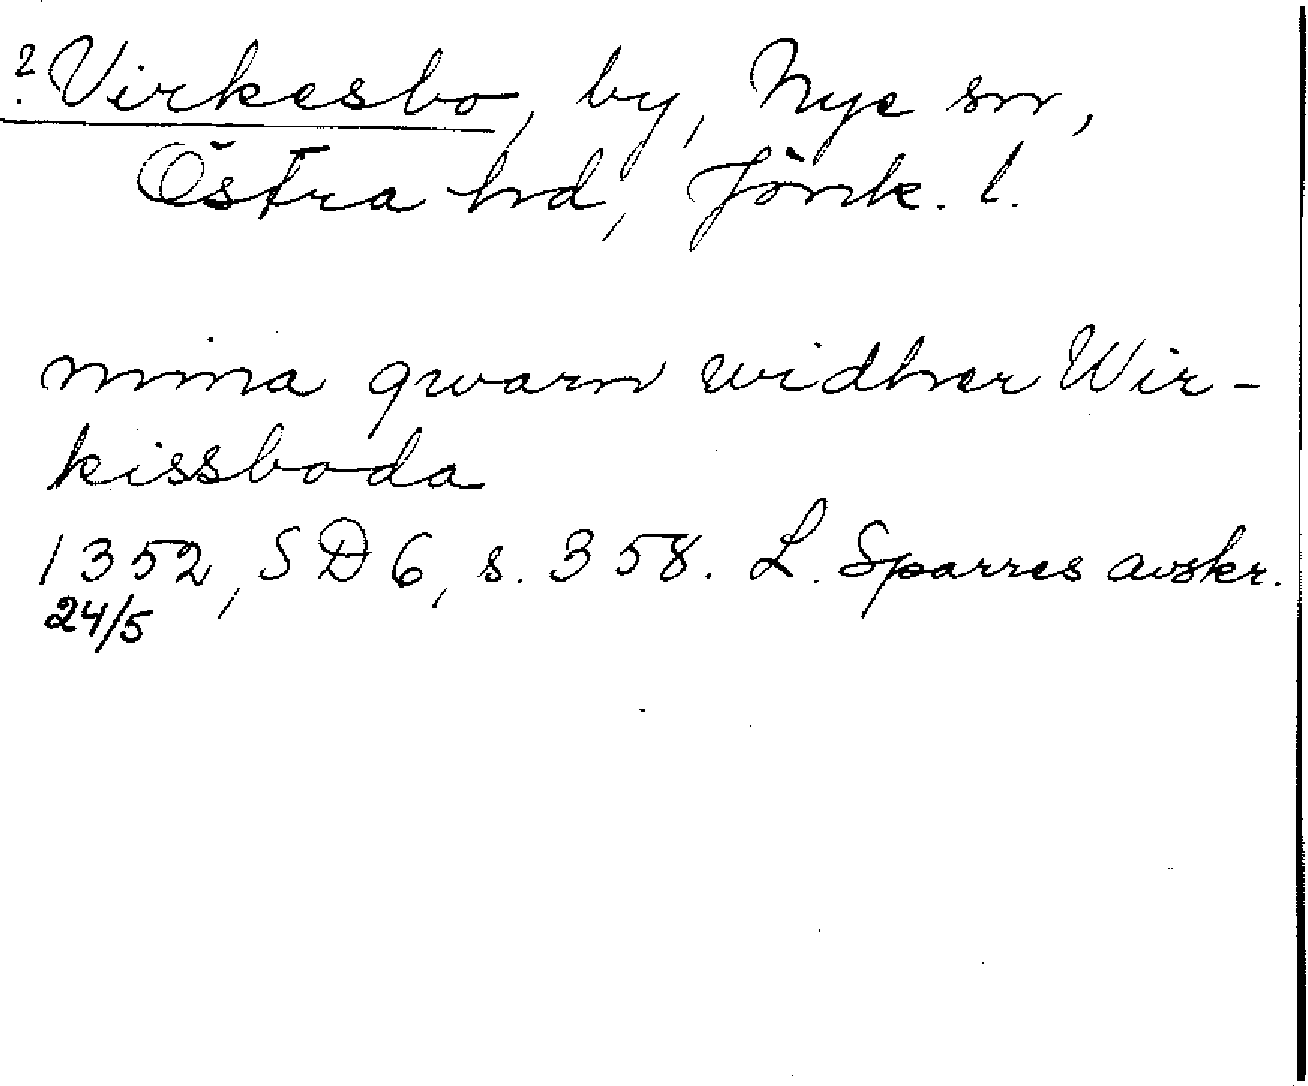 ? Virkesbo, by, Nye sn,
Östra hd, Jönk. l.
mina qwarn widher Wir-
kissboda
1352, SD 6, s. 358. L. Sparres avskr.
24/5